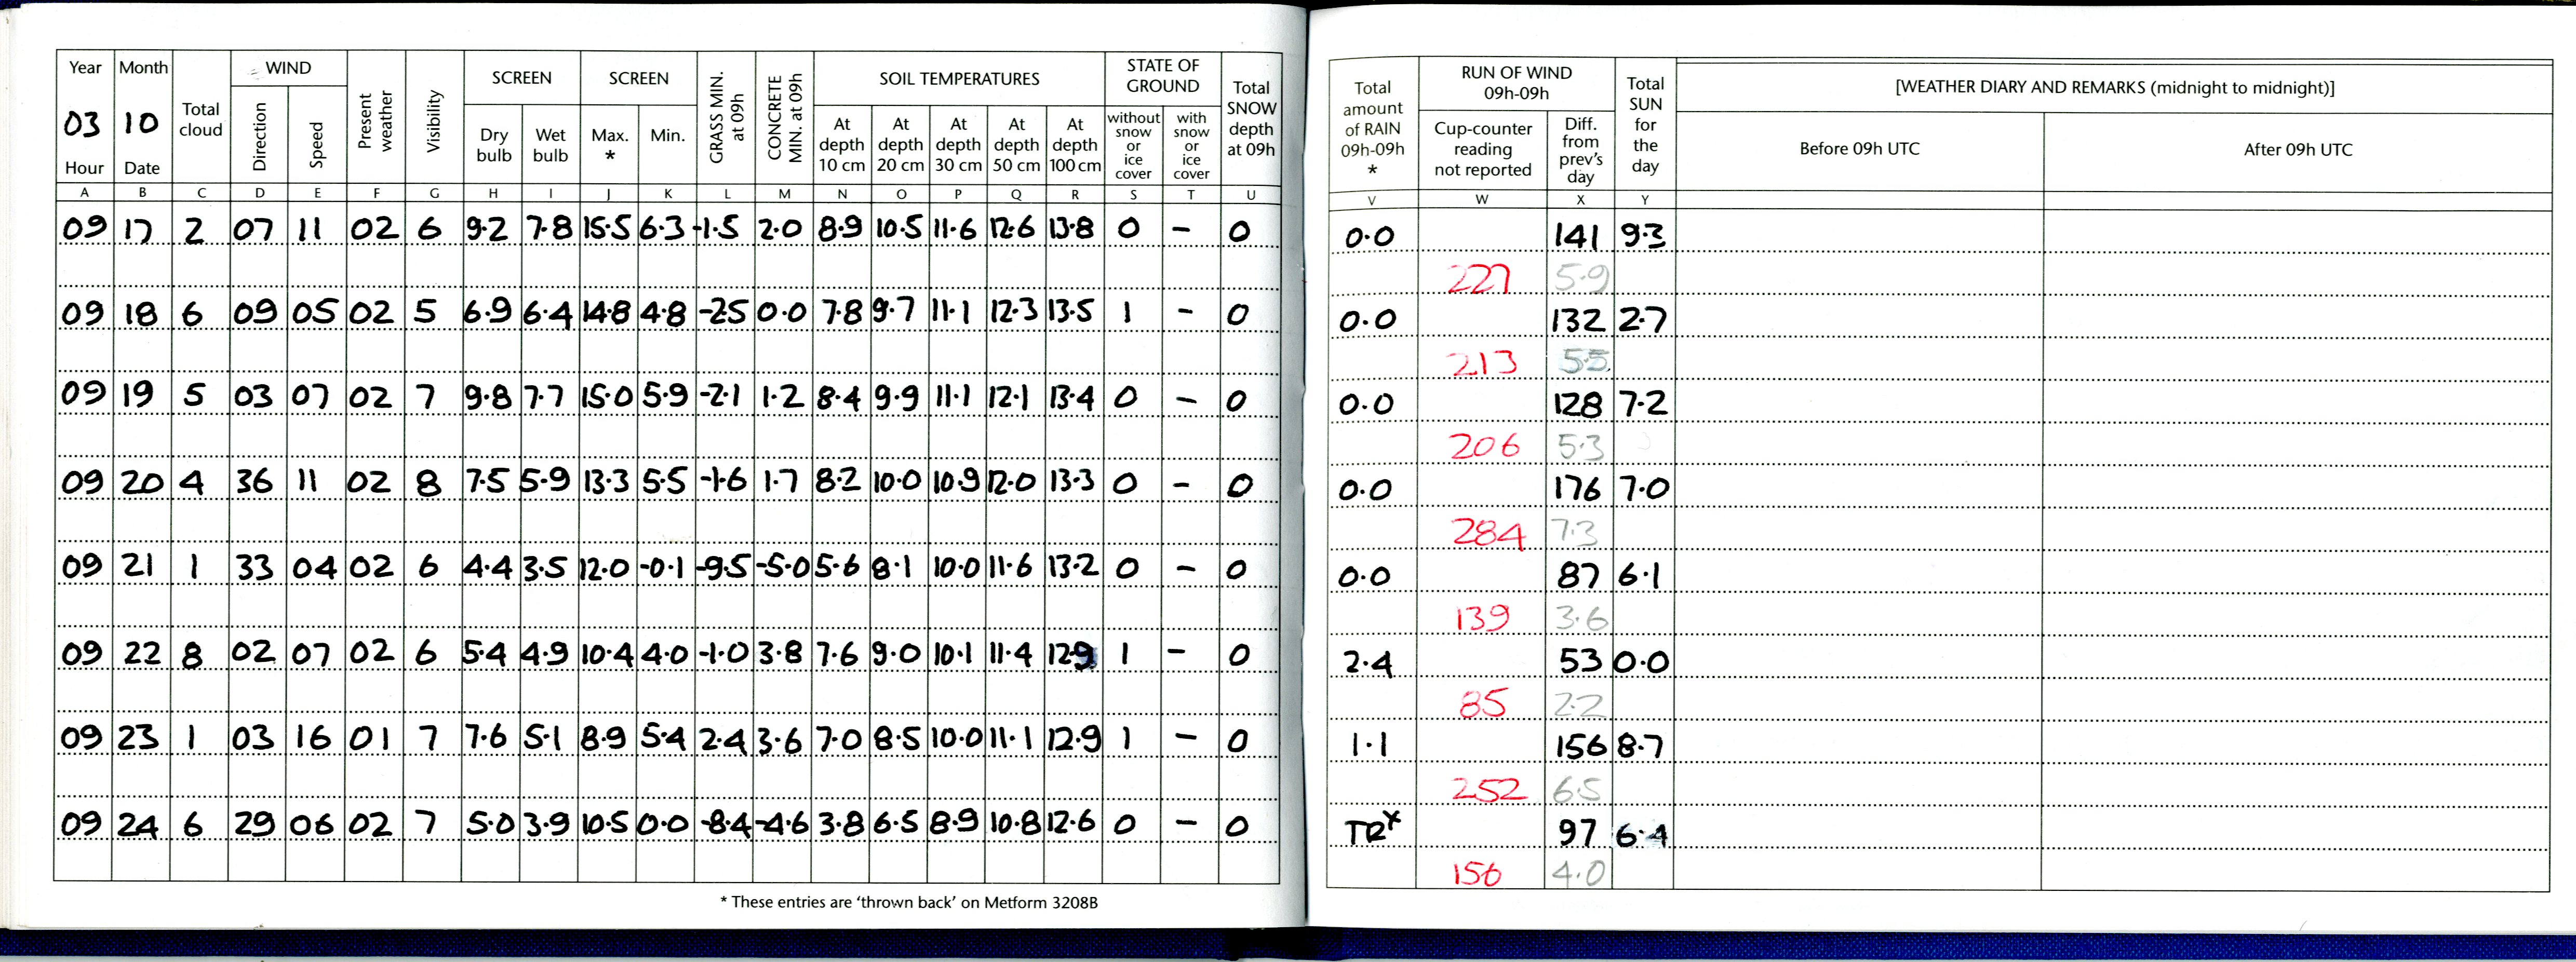 Year Month Total cloud WIND Present weather Visibility SCREEN SCREEN GRASS MIN. at 09h CONCRETE MIN. at 09h SOIL TEMPERATURES STATE OF GROUND Total SNOW depth at 09h
03 10 Direction Speed Dry bulb Wet bulb Max. * Min. At depth 10 cm At depth 20 cm At depth 30 cm At depth 50 cm At depth 100 cm without snow or ice cover with snow or ice cover
Hour Date
A B C D E F G H I J K L M N O P Q R S T U
09 17 2 07 11 02 6 9.2 7.8 15.5 6.3 -1.5 2.0 8.9 10.5 11.6 12.6 13.8 0 - 0
09 18 6 09 05 02 5 6.9 6.4 14.8 4.8 -2.5 0.0 7.8 9.7 11.1 12.3 13.5 1 - 0
09 19 5 03 07 02 7 9.8 7.7 15.0 5.9 -2.1 1.2 8.4 9.9 11.1 12.1 13.4 0 - 0
09 20 4 36 11 02 8 7.5 5.9 13.3 5.5 -1.6 1.7 8.2 10.0 10.9 12.0 13.3 0 - 0
09 21 1 33 04 02 6 4.4 3.5 12.0 -0.1 -9.5 -5.0 5.6 8.1 10.0 11.6 13.2 0 - 0
09 22 8 02 07 02 6 5.4 4.9 10.4 4.0 -1.0 3.8 7.6 9.0 10.1 11.4 12.9 1 - 0
09 23 1 03 16 01 7 7.6 5.1 8.9 5.4 2.4 3.6 7.0 8.5 10.0 11.1 12.9 1 - 0
09 24 6 29 06 02 7 5.0 3.9 10.5 0.0 -8.4 -4.6 3.8 6.5 8.9 10.8 12.6 0 - 0
* These entries are 'thrown back' on Metform 3208B
Total amount of RAIN 09h-09h * RUN OF WIND 09h-09h Total SUN for the day [WEATHER DIARY AND REMARKS (midnight to midnight)]
Cup-counter reading not reported Diff. from prev's day Before 09h UTC After 09h UTC
V W X Y
0.0 141 9.3
227 5.9
0.0 132 2.7
213 5.5
0.0 128 7.2
206 5.3
0.0 176 7.0
284 7.3
0.0 87 6.1
139 3.6
2.4 53 0.0
85 2.2
1.1 156 8.7
252 6.5
TR* 97 6.4
156 4.0